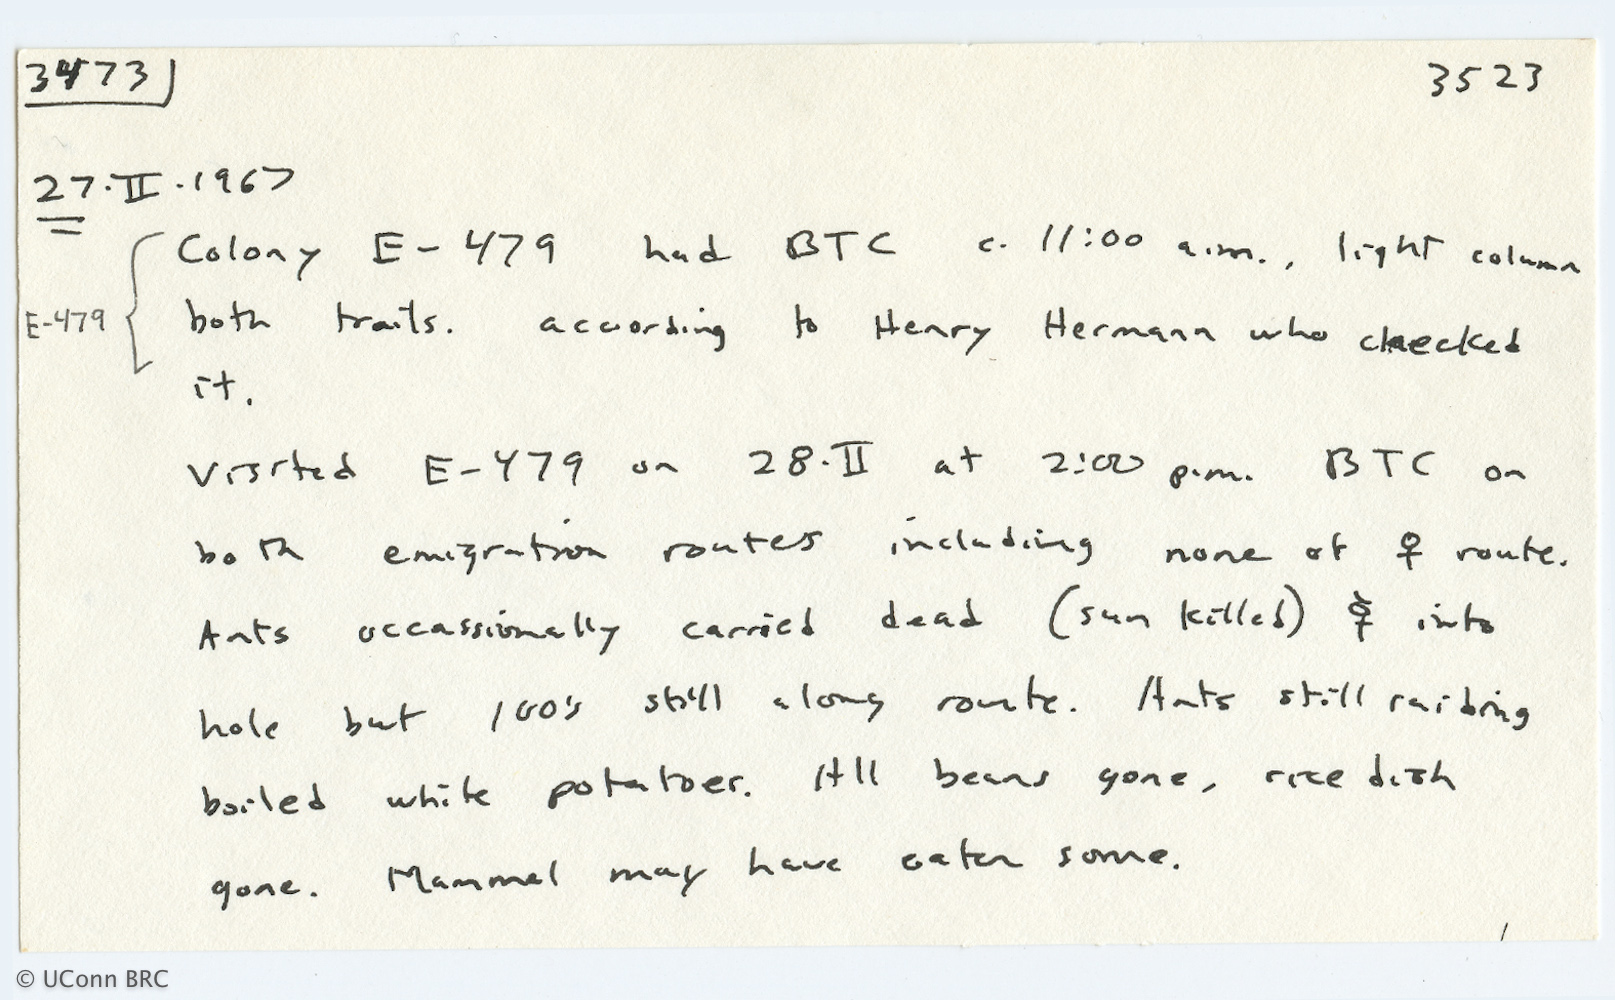 3473 3523
27.II.1967
Colony E-479 had BTC c. 11:00 a.m., light column
E-479 both trails. according to Henry Hermann who checked
it.
Visited E-479 on 28.II at 2:00 p.m. BTC on
both emigration routes including none of ♀ route.
Ants occassionally carried dead (sun killed) ☿ into
hole but 100's still along route. Ants still raiding
boiled white potatoes. All beans gone, rice dish
gone. Mammal may have eaten some.
© UConn BRC